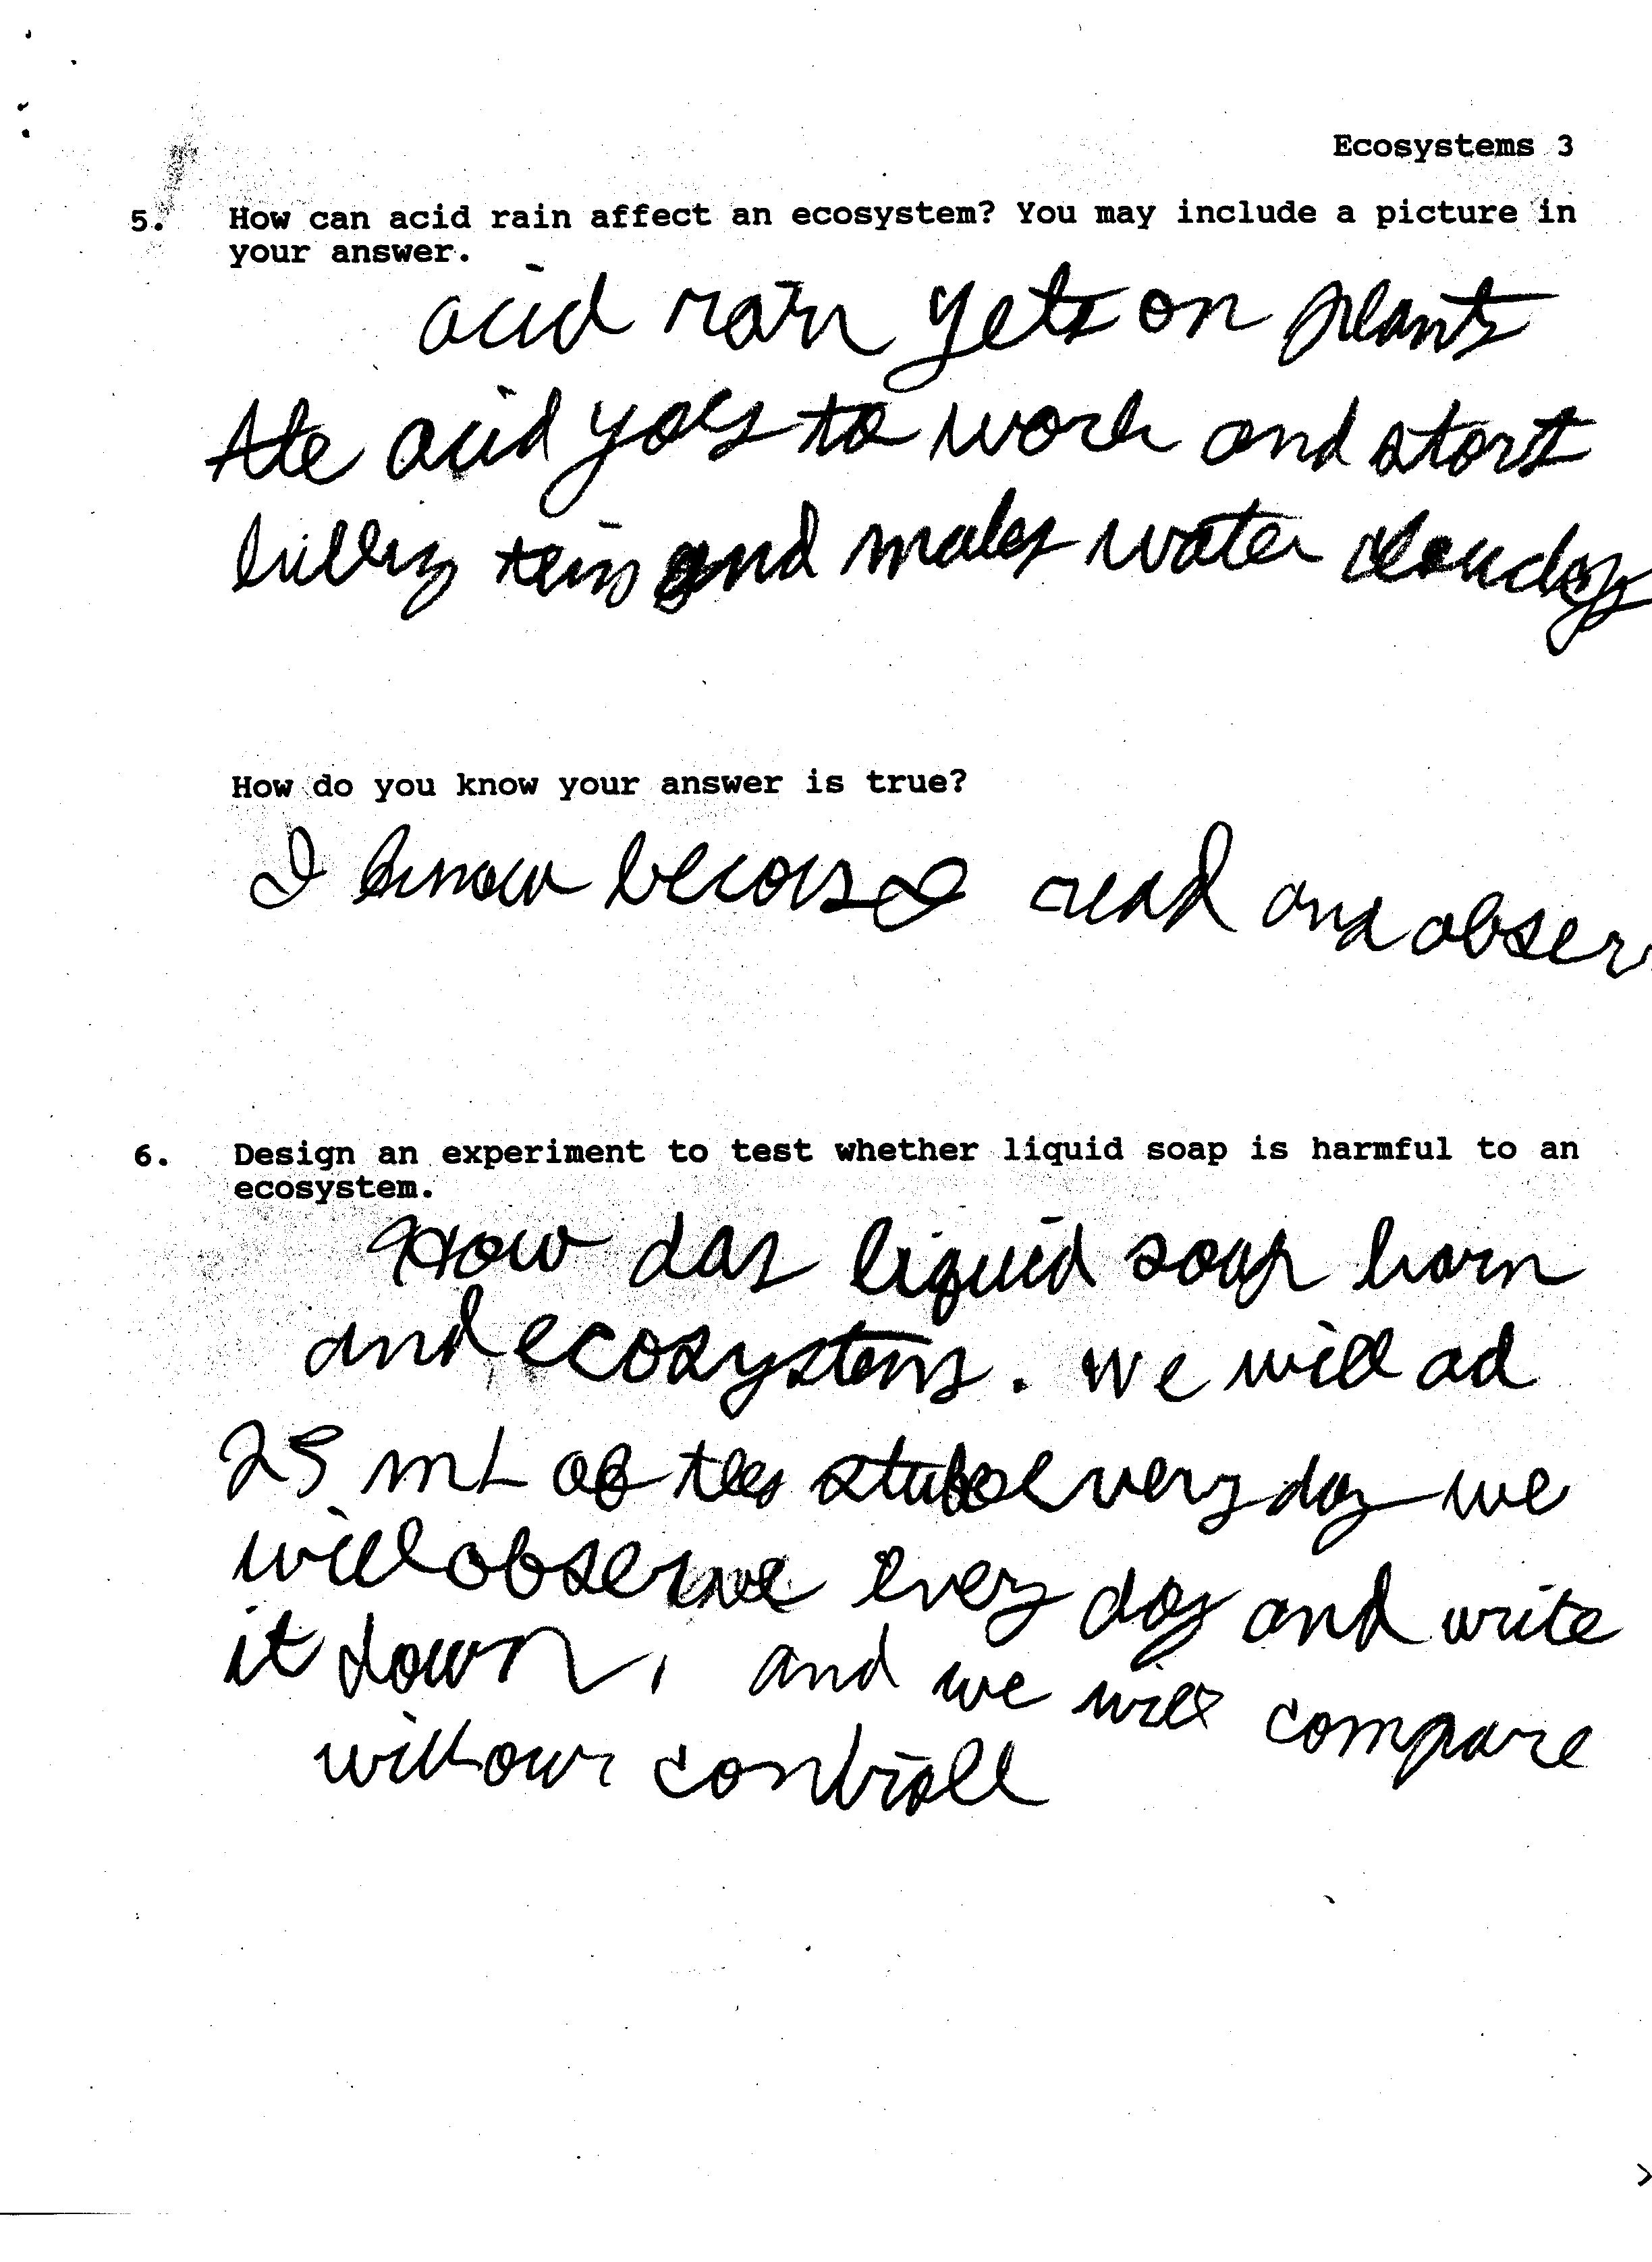 Ecosystems 3
5. How can acid rain affect an ecosystem? You may include a picture in
your answer.
acid rain gets on plants
the acid goes to work and start
and makes water cloudy
How do you know your answer is true?
I know becouse read and observ
6. Design an experiment to test whether liquid soap is harmful to an
ecosystem.
How das liquid soap harn
and ecosystems. we will ad
25 mL of stufe every day we
will observe every day and write
it down, and we will compare
will our controll